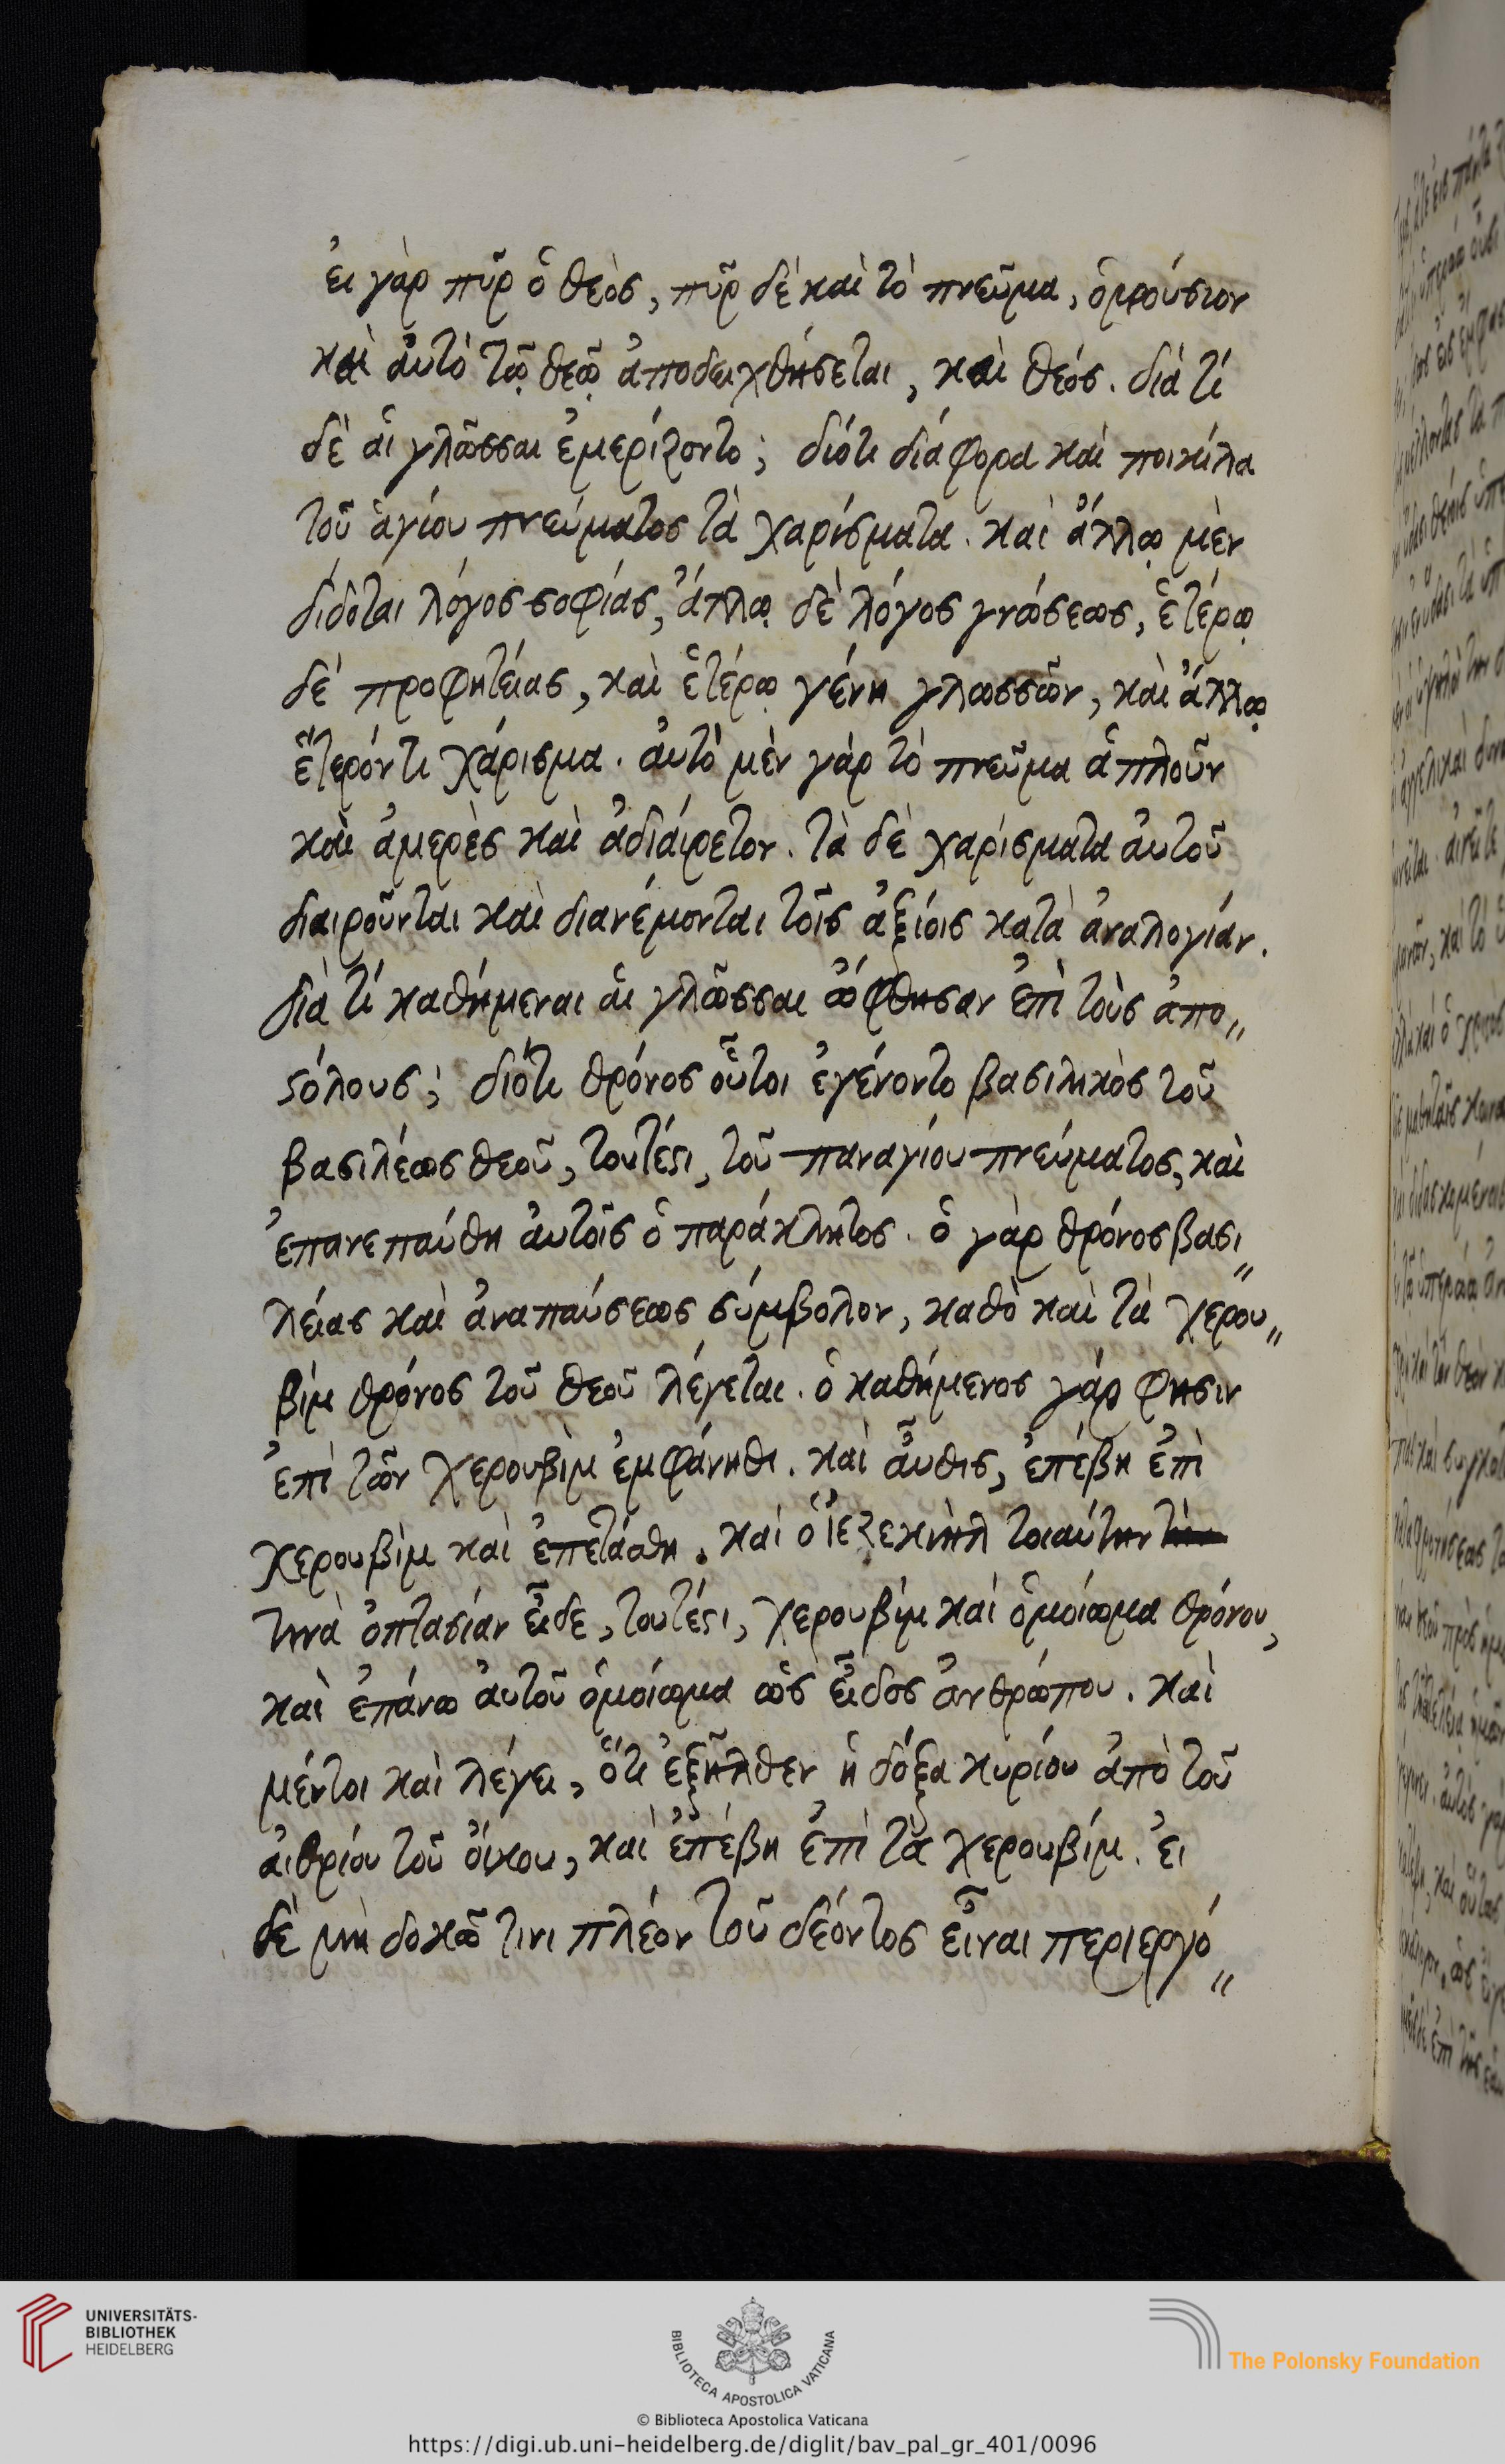 ἐι γὰρ πῦρ ὁ θεὸς, πῦρ δὲ καὶ τὸ πνεῦμα, ὁμοούσιον
καὶ ἀυτὸ τῶ̣ θεῶ̣ ἀποδειχθήσεται, καὶ θεός. διὰ τί
δὲ ἁι γλῶσσαι ἐμερίζοντο; διότι διάφορα καὶ ποικίλα
τοῦ ἁγίου πνεύματος τὰ χαρίσματα. καὶ ἄλλῳ μὲν
δίδοται λόγος σοφίας, ἄλλῳ δὲ λόγος γνώσεως, ἑτέρῳ
δὲ προφητείας, καὶ ἑτέρῳ γένη γλωσσῶν, καὶ ἄλλῳ
ἕτερόν τι χάρισμα. ἀυτὸ μὲν γὰρ τὸ πνεῦμα ἁπλοῦν
καὶ ἀμερὲς καὶ ἀδιάιρετον. τὰ δὲ χαρίσματα ἀυτοῦ
διαιροῦνται καὶ διανέμονται τοῖς ἀξίοις κατὰ ἀναλογίαν.
διὰ τί καθήμεναι ἁι γλῶσσαι ὤφθησαν ἐπὶ τοὺς ἀπο〃
ϛόλους; διότι θρόνος οὗτοι ἐγένοντο βασιλικὸς τοῦ
βασιλέως θεοῦ, τουτέϛι, τοῦ παναγίου πνεύματος, καὶ
ἐπανεπαύθη ἀυτοῖς ὁ παράκλητος. ὁ γὰρ θρόνος βασι〃
λείας καὶ ἀναπαύσεως σύμβολον, καθὸ καὶ τὰ χερου〃
βὶμ θρόνος τοῦ θεοῦ λέγεται. ὁ καθήμενος γάρ φησιν
ἐπὶ τῶν χερουβὶμ ἐμφάνηθι. καὶ ἆυθις, ἐπέβη ἐπὶ
χερουβὶμ καὶ ἐπετάσθη. καὶ ὁ ἰεζεκιὴλ τοιαύτην τὴν
τινὰ ὀπτασίαν εἶδε, τουτέϛι, χερουβὶμ καὶ ὁμοίωμα θρόνου,
καὶ ἐπάνω ἀυτοῦ ὁμοίωμα ὡς εἶδος ἀνθρώπου. καὶ
μέντοι καὶ λέγει, ὅτι ἐξῆλθεν ἡ δόξα κυρίου ἀπὸ τοῦ
ἀιθρίου τοῦ ὄικου, καὶ ἐπέβη ἐπὶ τὰ χερουβίμ. ἐι
δὲ μὴ δοκῶ τινι πλέον τοῦ δέοντος εἶναι περιεργό〃
UNIVERSITÄTS-
BIBLIOTHEK
HEIDELBERG
BIBLIOTECA APOSTOLICA VATICANA
The Polonsky Foundation
© Biblioteca Apostolica Vaticana
https://digi.ub.uni-heidelberg.de/diglit/bav_pal_gr_401/0096